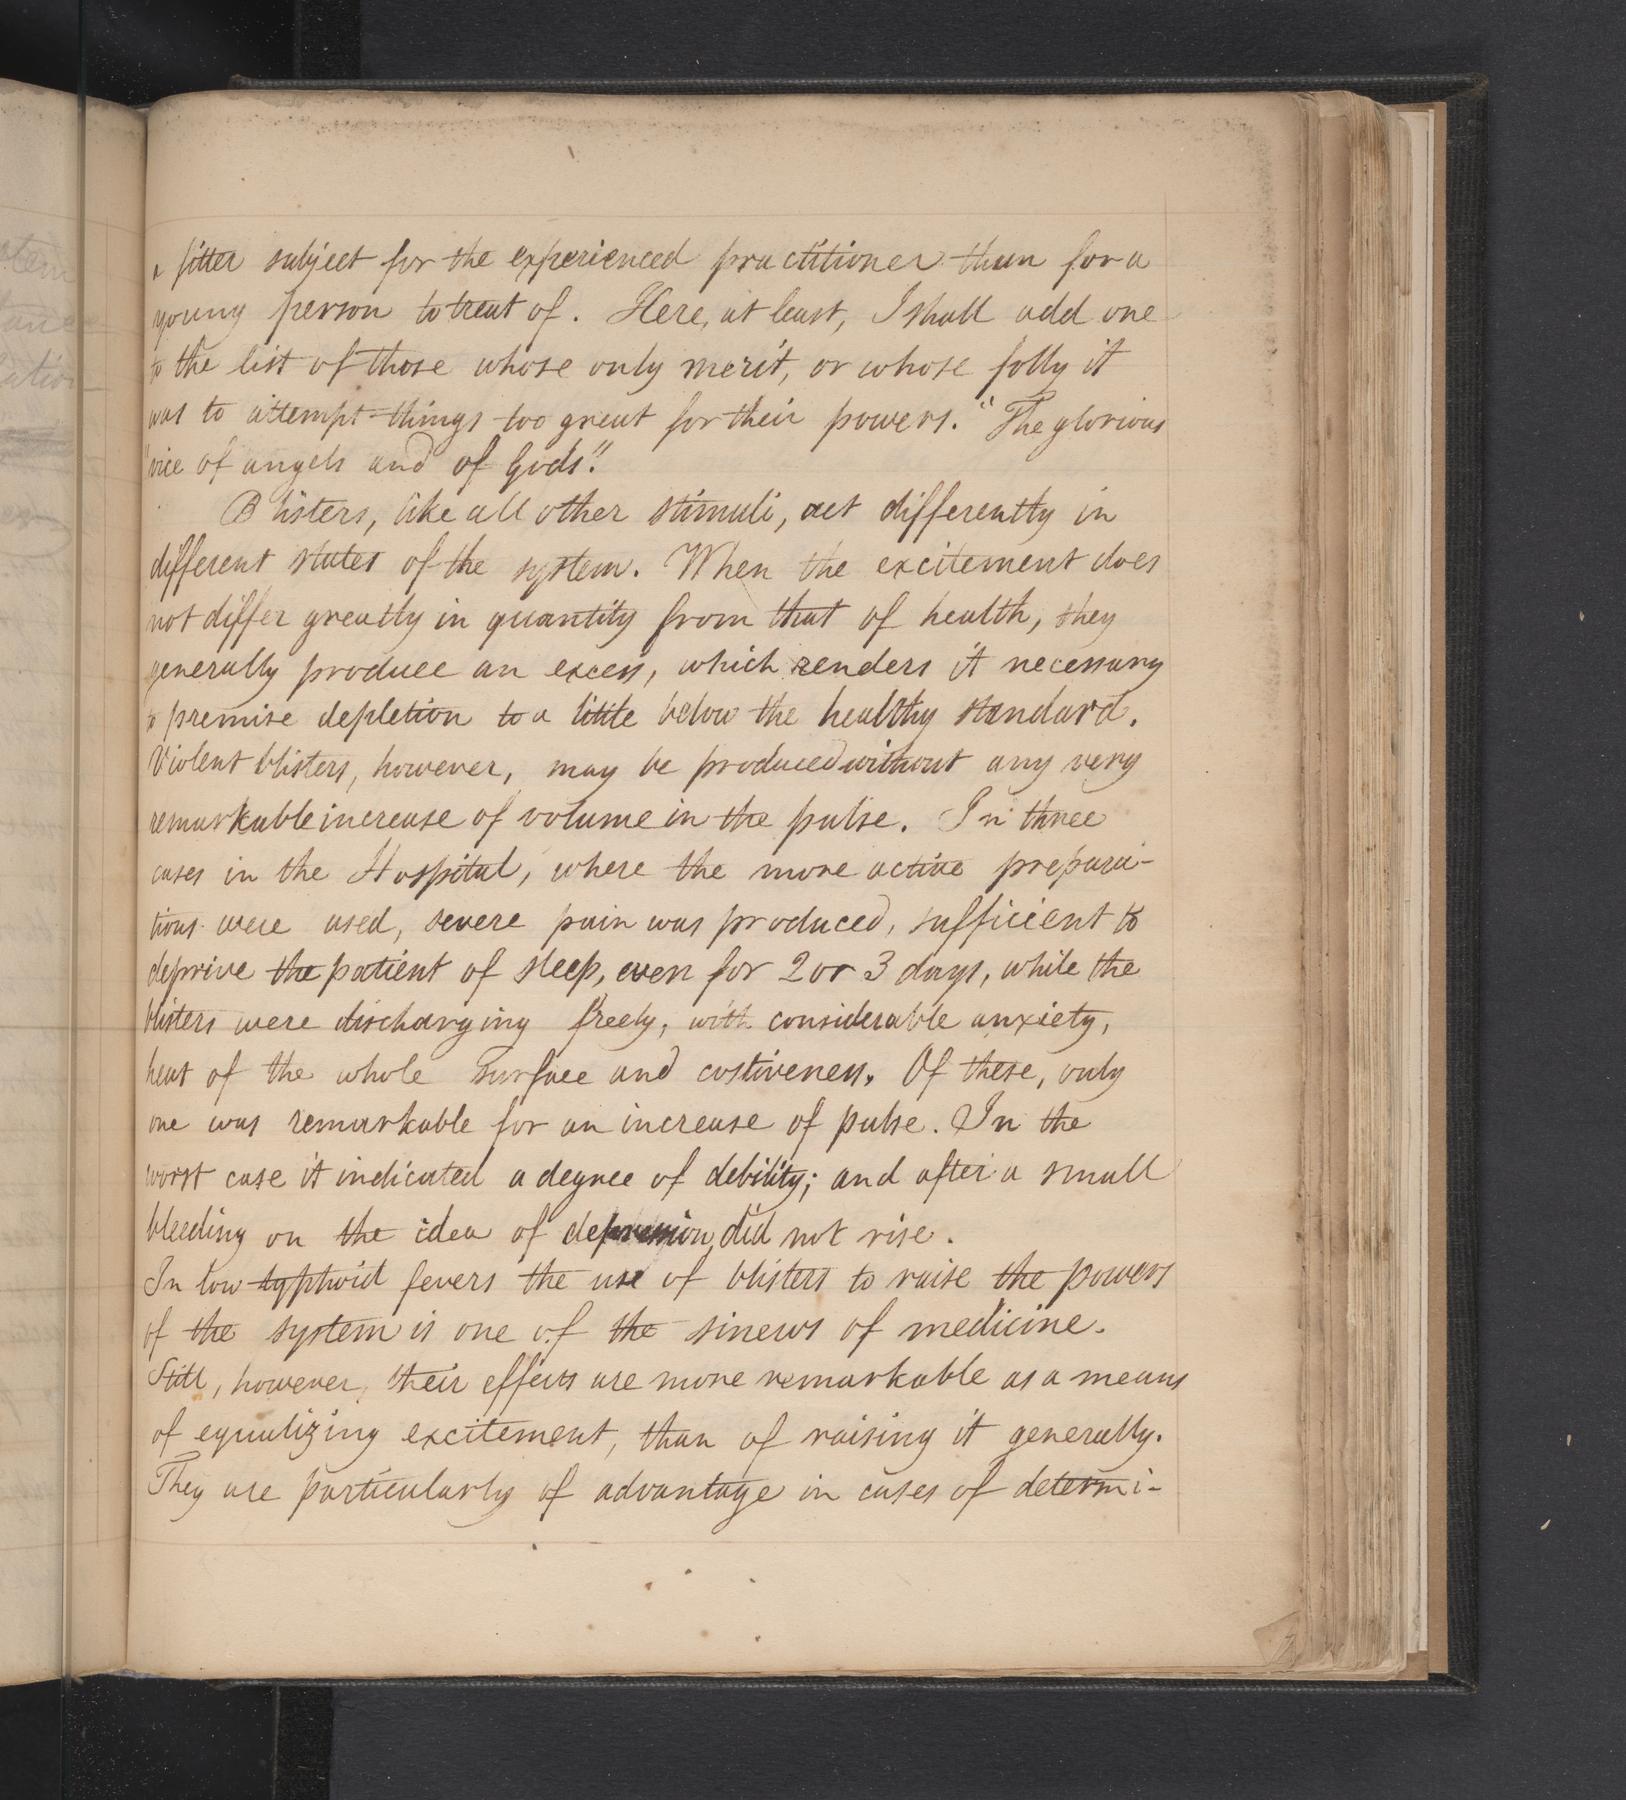 a fitter subject for the experienced practitioner than for a
young person to treat of. Here, at least, I shall add one
to the list of those whose only merit, or whose folly it
was to attempt things too great for their powers. "The glorious
vice of angels and of Gods".
Blisters, like all other stimuli, act differently in
different states of the system. When the excitement does
not differ greatly in quantity from that of health, they
generally produce an excess, which renders it necessary
to premise depletion to a little below the healthy standard.
Violent blisters, however, may be produced without any very
remarkable increase of volume in the pulse. In three
cases in the Hospital, where the more active prepara-
tions were used, severe pain was produced, sufficient to
deprive the patient of sleep, even for 2 or 3 days, while the
blisters were discharging freely, with considerable anxiety,
heat of the whole surface and costiveness. Of these, only
one was remarkable for an increase of pulse. In the
worst case it indicated a degree of debility; and after a small
bleeding on the idea of depression, did not rise.
In low typhoid fevers the use of blisters to raise the powers
of the system is one of the sinews of medicine.
Still, however, their effects are more remarkable as a means
of equalizing excitement, than of raising it generally.
They are particularly of advantage in cases of determi-